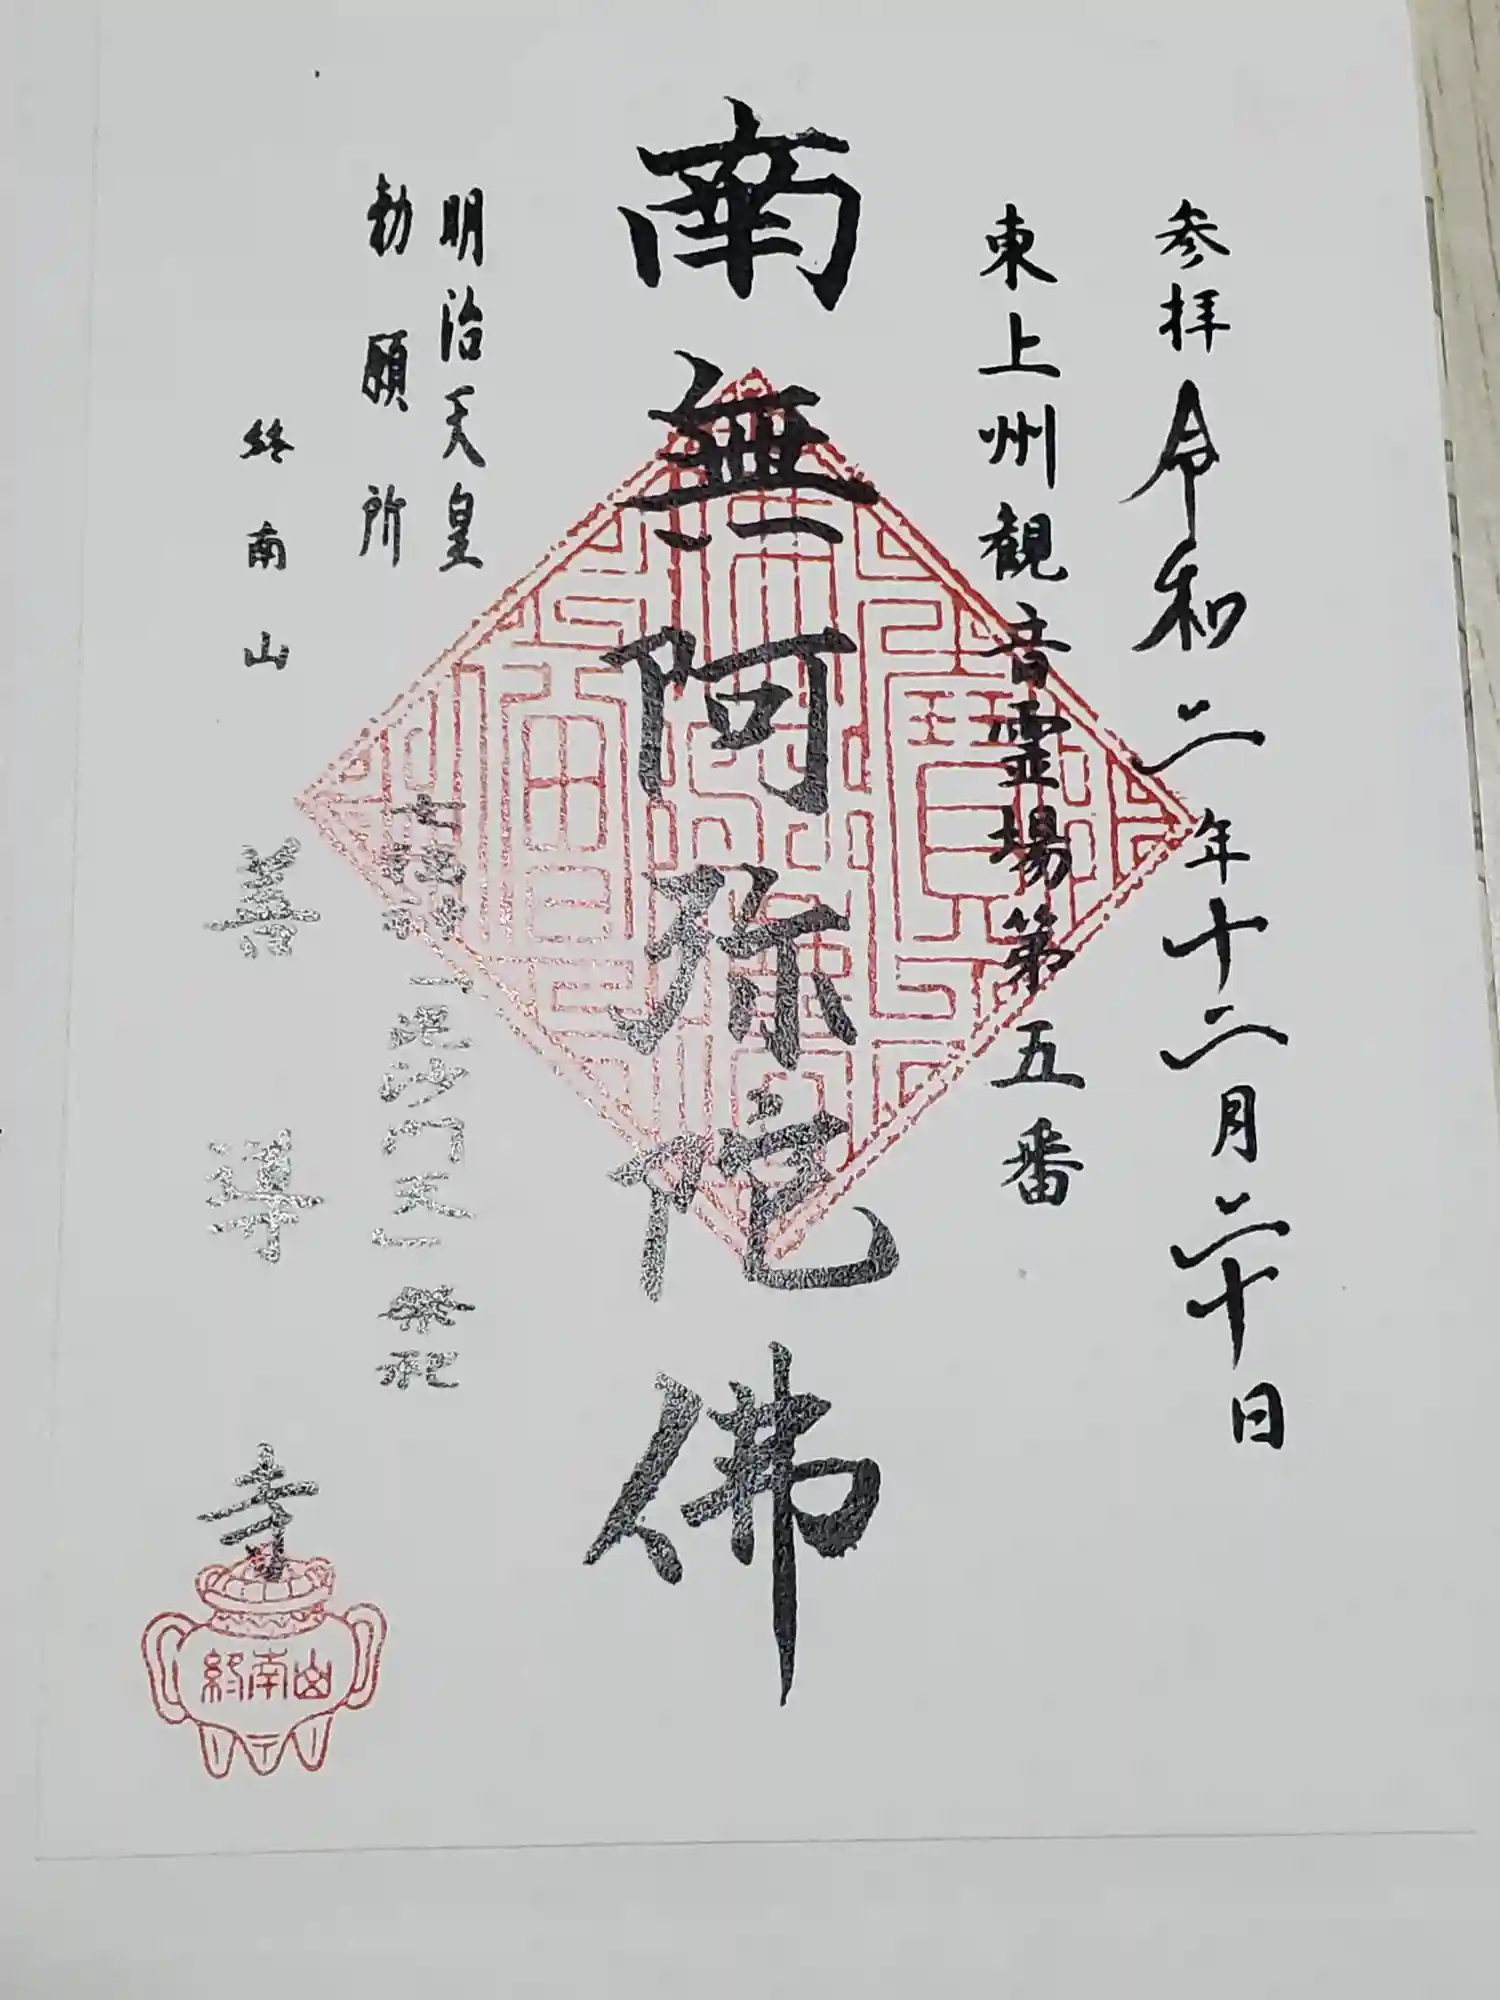 参拝 令和二年十二月二十日
東上州観音霊場第五番
南無阿弥陀佛
明治天皇
勅願所
七福神「毘沙門天」祭祀
終南山
善導寺
終南山